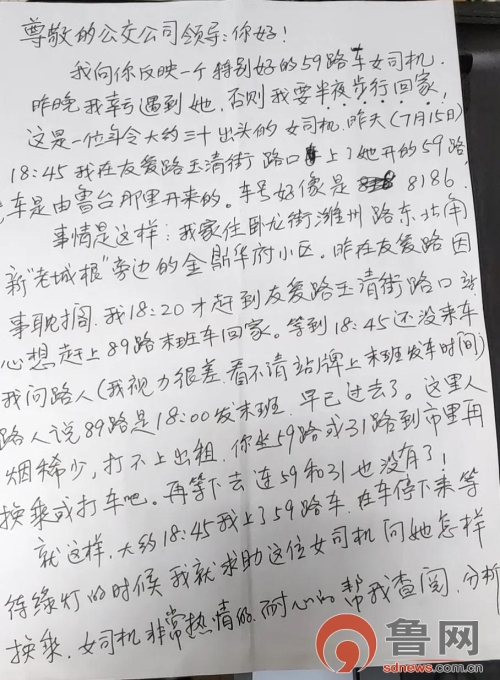 尊敬的公交公司领导:你好!
我向你反映一个特别好的59路车女司机.
昨晚我幸亏遇到她,否则我要半夜步行回家,
这是一位年令大约三十出头的女司机.昨天(7月15日)
18:45我在友爱路玉清街路口上了她开的59路,
车是由鲁台那里开来的。车号好像是 8186.
事情是这样:我家住卧龙街潍州路东北角
新"老城根"旁边的金鼎华府小区。昨在友爱路因
事耽搁.我18:20才赶到友爱路玉清街路口站
心想赶上89路末班车回家。等到18:45还没来车
我问路人(我视力很差.看不清站牌上末班发车时间)
路人说89路是18:00发末班.早已过去了。这里人
烟稀少,打不上出租.你坐59路或31路到市里再
换乘或打车吧。再等下去连59和31也没有了!
就这样,大约18:45我上了59路车.在车停下来等
待绿灯的时候我就求助这位女司机问她怎样
换乘.女司机非常热情的.耐心的帮我查阅.分析
鲁网
sdnews.com.cn